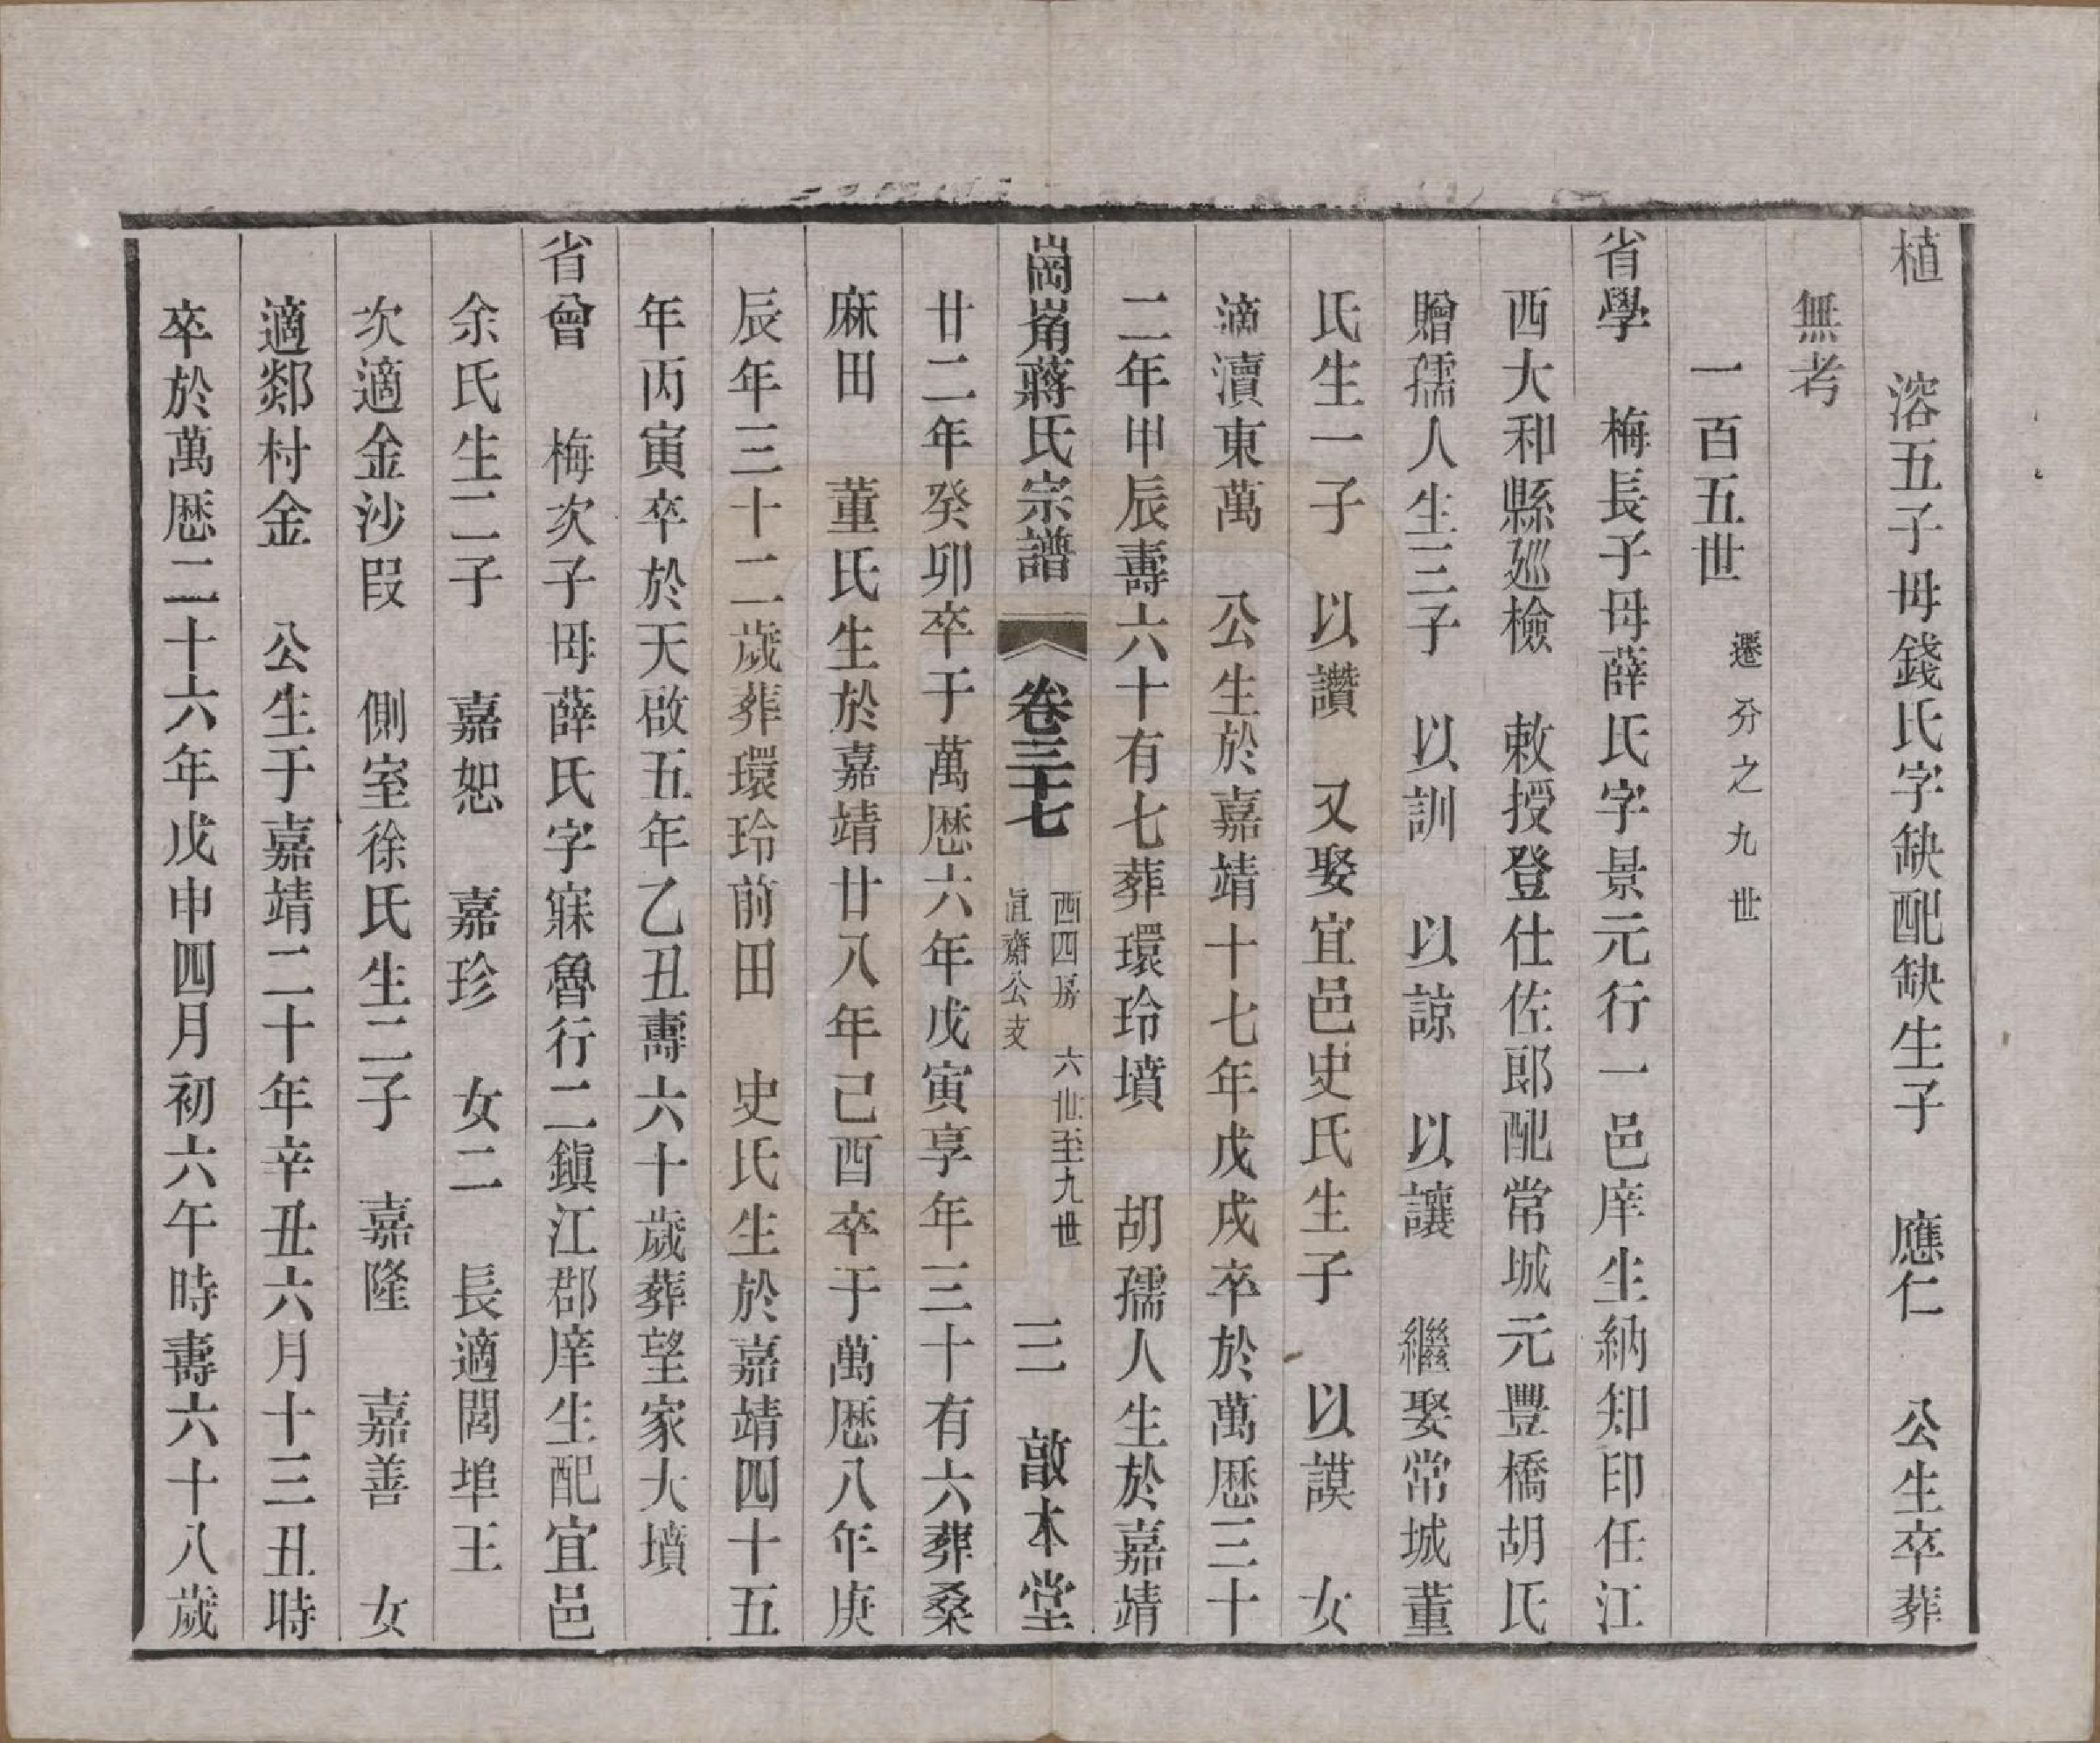 植　溶五子毋錢氏字缺配缺生子　應仁　公生卒葬
無考
一百五世　遷分之九世
省學　梅長子毋薛氏字景元行一邑庠生納知印任江
西大和縣廵檢　敕授登仕佐郎配常城元豐橋胡氏
贈孺人生三子　以訓　以諒　以讓　繼娶常城董
氏生一子　以讚　又娶宜邑史氏生子　以謨　女
適瀆東萬　公生於嘉靖十七年戊戌卒於萬厯三十
二年甲辰壽六十有七葬環玲墳　胡孺人生於嘉靖
崗崙蔣氏宗譜　卷三十七　西四房　六世至九世　直齋公支　三　敬本堂
廿二年癸卯卒于萬厯六年戊寅享年三十有六葬桑
麻田　董氏生於嘉靖廿八年己酉卒于萬厯八年庚
辰年三十二歲葬環玲前田　史氏生於嘉靖四十五
年丙寅卒於天啟五年乙丑壽六十歲葬望家大墳
省曾　梅次子毋薛氏字寐魯行二鎭江郡庠生配宜邑
余氏生二子　嘉恕　嘉珍　女二　長適閭埠王
次適金沙叚　側室徐氏生二子　嘉隆　嘉善　女
適鄒村金　公生于嘉靖二十年辛丑六月十三丑時
卒於萬厯二十六年戊申四月初六午時壽六十八歲